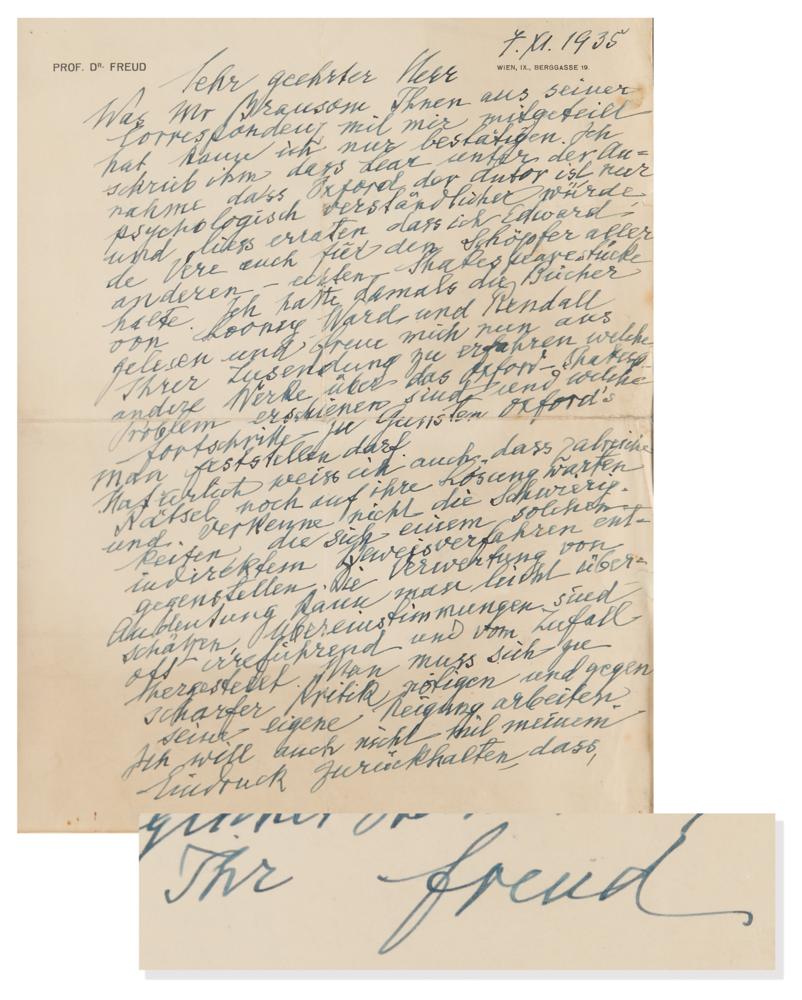 7. XI. 1935
PROF. DR. FREUD
WIEN, IX., BERGGASSE 19.
Sehr geehrter Herr
Was Mr Bransom Ihnen aus seiner
Correspondenz mit mir mitgeteilt
hat kann ich nur bestätigen. Ich
schrieb ihm dass Lear unter der An=
nahme dass Oxford der Autor ist nur
psychologisch verständlicher würde
und liess erraten dass ich Edward
de Vere auch für den Schöpfer aller
anderen – echten – Shakespearestücke
halte. Ich hatte damals die Bücher
von Looney Ward und Rendall
gelesen und freue mich nun aus
Ihrer Zusendung zu erfahren welche
andere Werke über das Oxford-Shakesp
Problem erschienen sind und welche
Fortschritte zu Gunsten Oxford's
man feststellen darf.
Natürlich weiss ich auch, dass zalreiche
Rätsel noch auf ihre Lösung warten
und verkenne nicht die Schwierig-
keiten, die sich einem solchen
indirektem Beweisverfahren ent-
gegenstellen. Die Verwertung von
Andeutung kann man leicht über-
schätzen, Übereinstimmungen sind
oft irreführend und vom Zufall
hergestellt. Man muss sich zu
scharfer Kritik nötigen und gegen
seine eigene Neigung arbeiten
Ich will auch nicht mit meinem
Eindruck zurückhalten, dass,
Ihr Freud